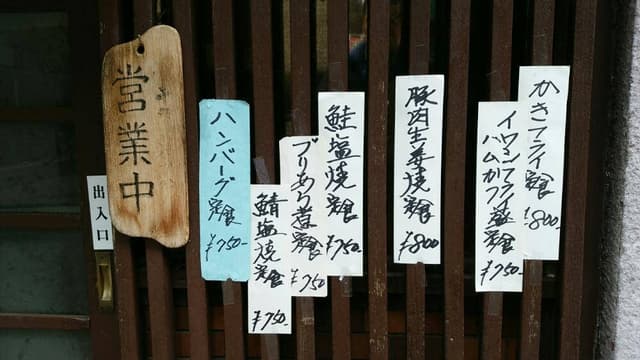 営業中
出入口
ハンバーグ定食
¥750-
鯖塩焼定食
¥750-
ブリあら煮定食
¥750
鮭塩焼定食
¥750-
豚肉生姜焼定食
¥800
イワシフライ
ハムカツ盛定食
¥750-
かきフライ定食
¥800-